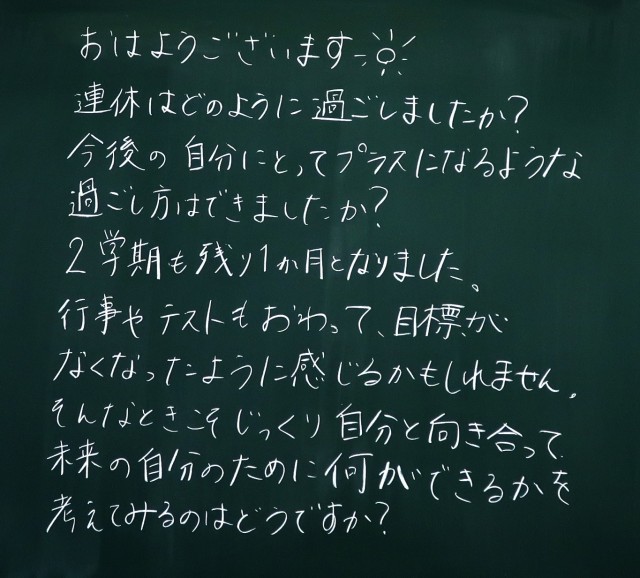 おはようございます
連休はどのように過ごしましたか?
今後の自分にとってプラスになるような
過ごし方はできましたか?
2学期も残り1か月となりました。
行事やテストもおわって、目標が
なくなったように感じるかもしれません。
そんなときこそじっくり自分と向き合って
未来の自分のために何ができるかを
考えてみるのはどうですか?